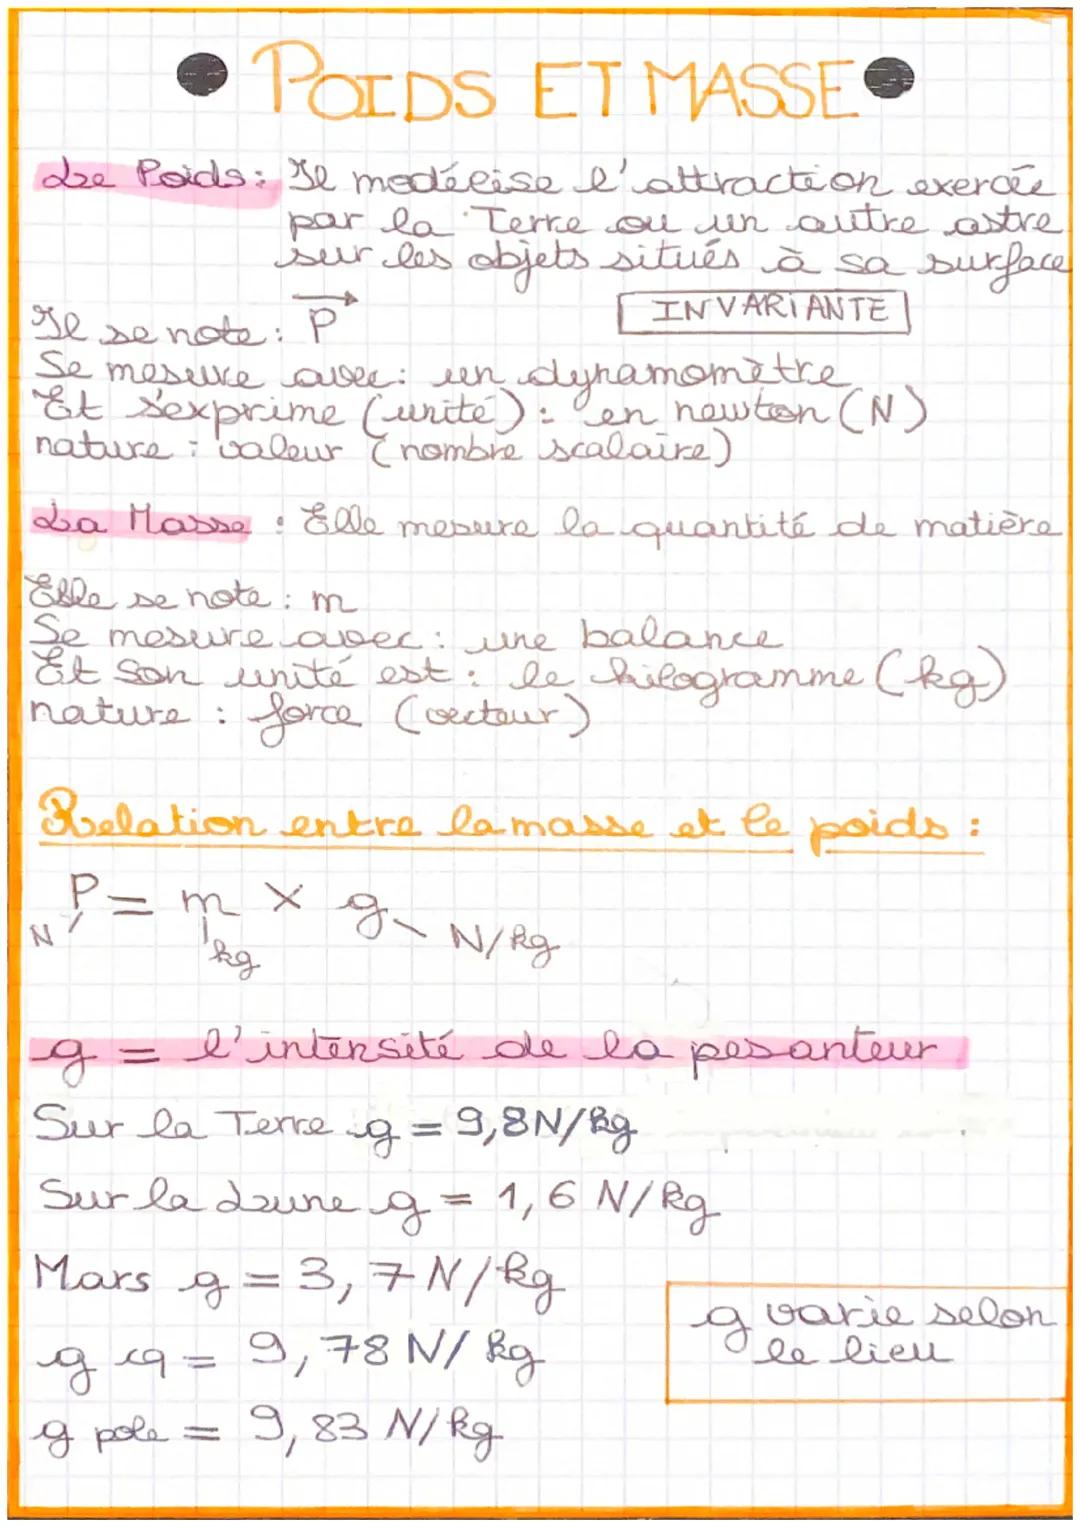 POIDS ET MASSE
Le Poids : Il modélise l'attraction exercée
par la Terre ou un autre astre
sur les objets situés à sa surface
INVARIANTE
Il se note : P
Se mesure avec : un dynamomètre
Et s'exprime (unité) : en newton (N)
nature : valeur (nombre scalaire)
La Masse : Elle mesure la quantité de matière
Elle se note : m
Se mesure avec : une balance
Et son unité est : le kilogramme (kg)
nature : force (vecteur)
Relation entre la masse et le poids :
P = m × g
N kg N/kg
g = l'intensité de la pesanteur
Sur la Terre g = 9,8 N/kg
Sur la Lune g = 1,6 N/kg
Mars g = 3,7 N/kg
g eq = 9,78 N/kg
g pole = 9,83 N/kg
g varie selon
le lieu